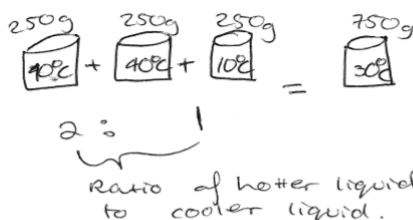 250g 250g 250g 750g
40°C + 40°C + 10°C = 30°C
2 : 1
Ratio of hotter liquid
to cooler liquid.